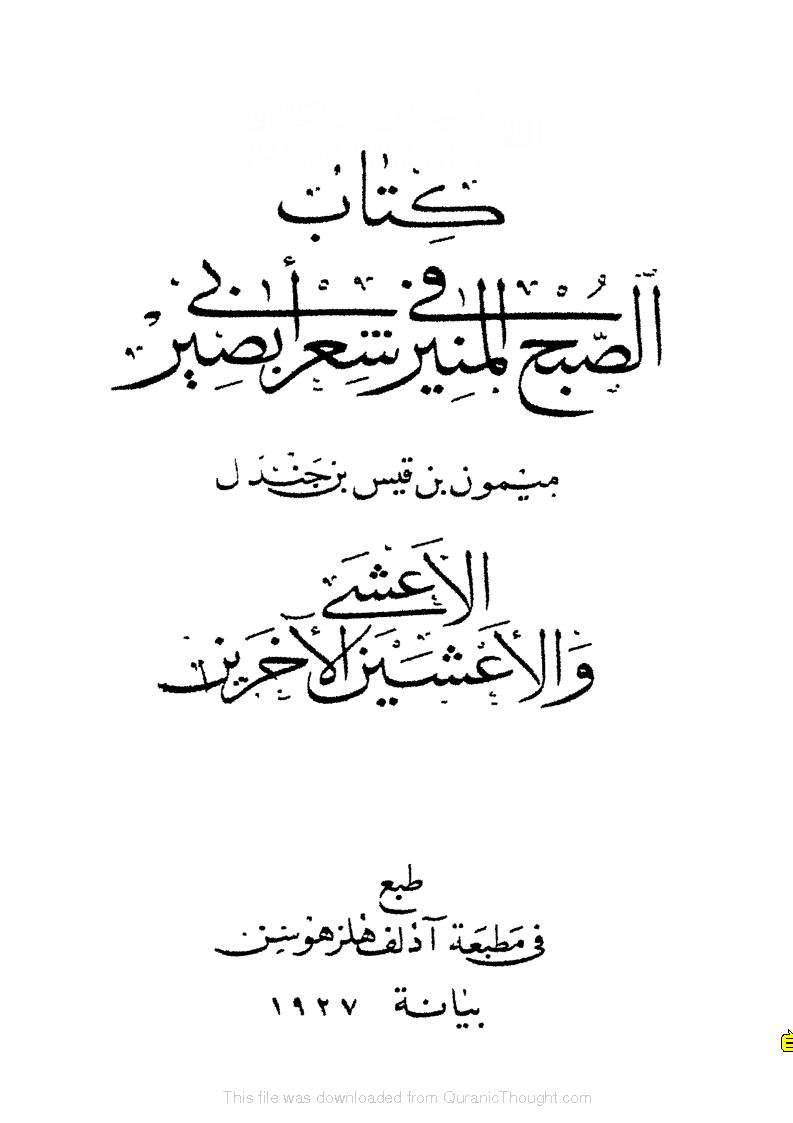 كِتَابُ
الصُّبْحِ المُنِيرِ فِي شِعْرِ أَبِي بَصِيرٍ
ميمون بن قيس بن جندل
الأَعْشَى
وَالأَعْشَيْنَ الآخَرِينَ
طبع
في مطبعة آذلف هلزهوسن
بيانة ١٩٢٧
This file was downloaded from QuranicThought.com